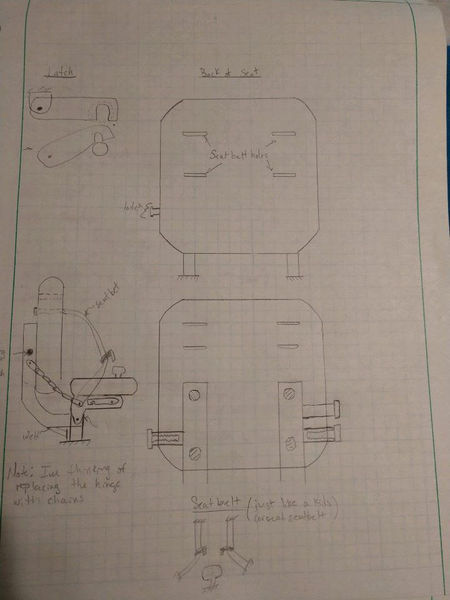 Latch
Back of Seat
Seat belt holes
seat belt
Note: I'm thinking of
replacing the hinge
with chains
Seat belt (just like a kids
carseat seatbelt